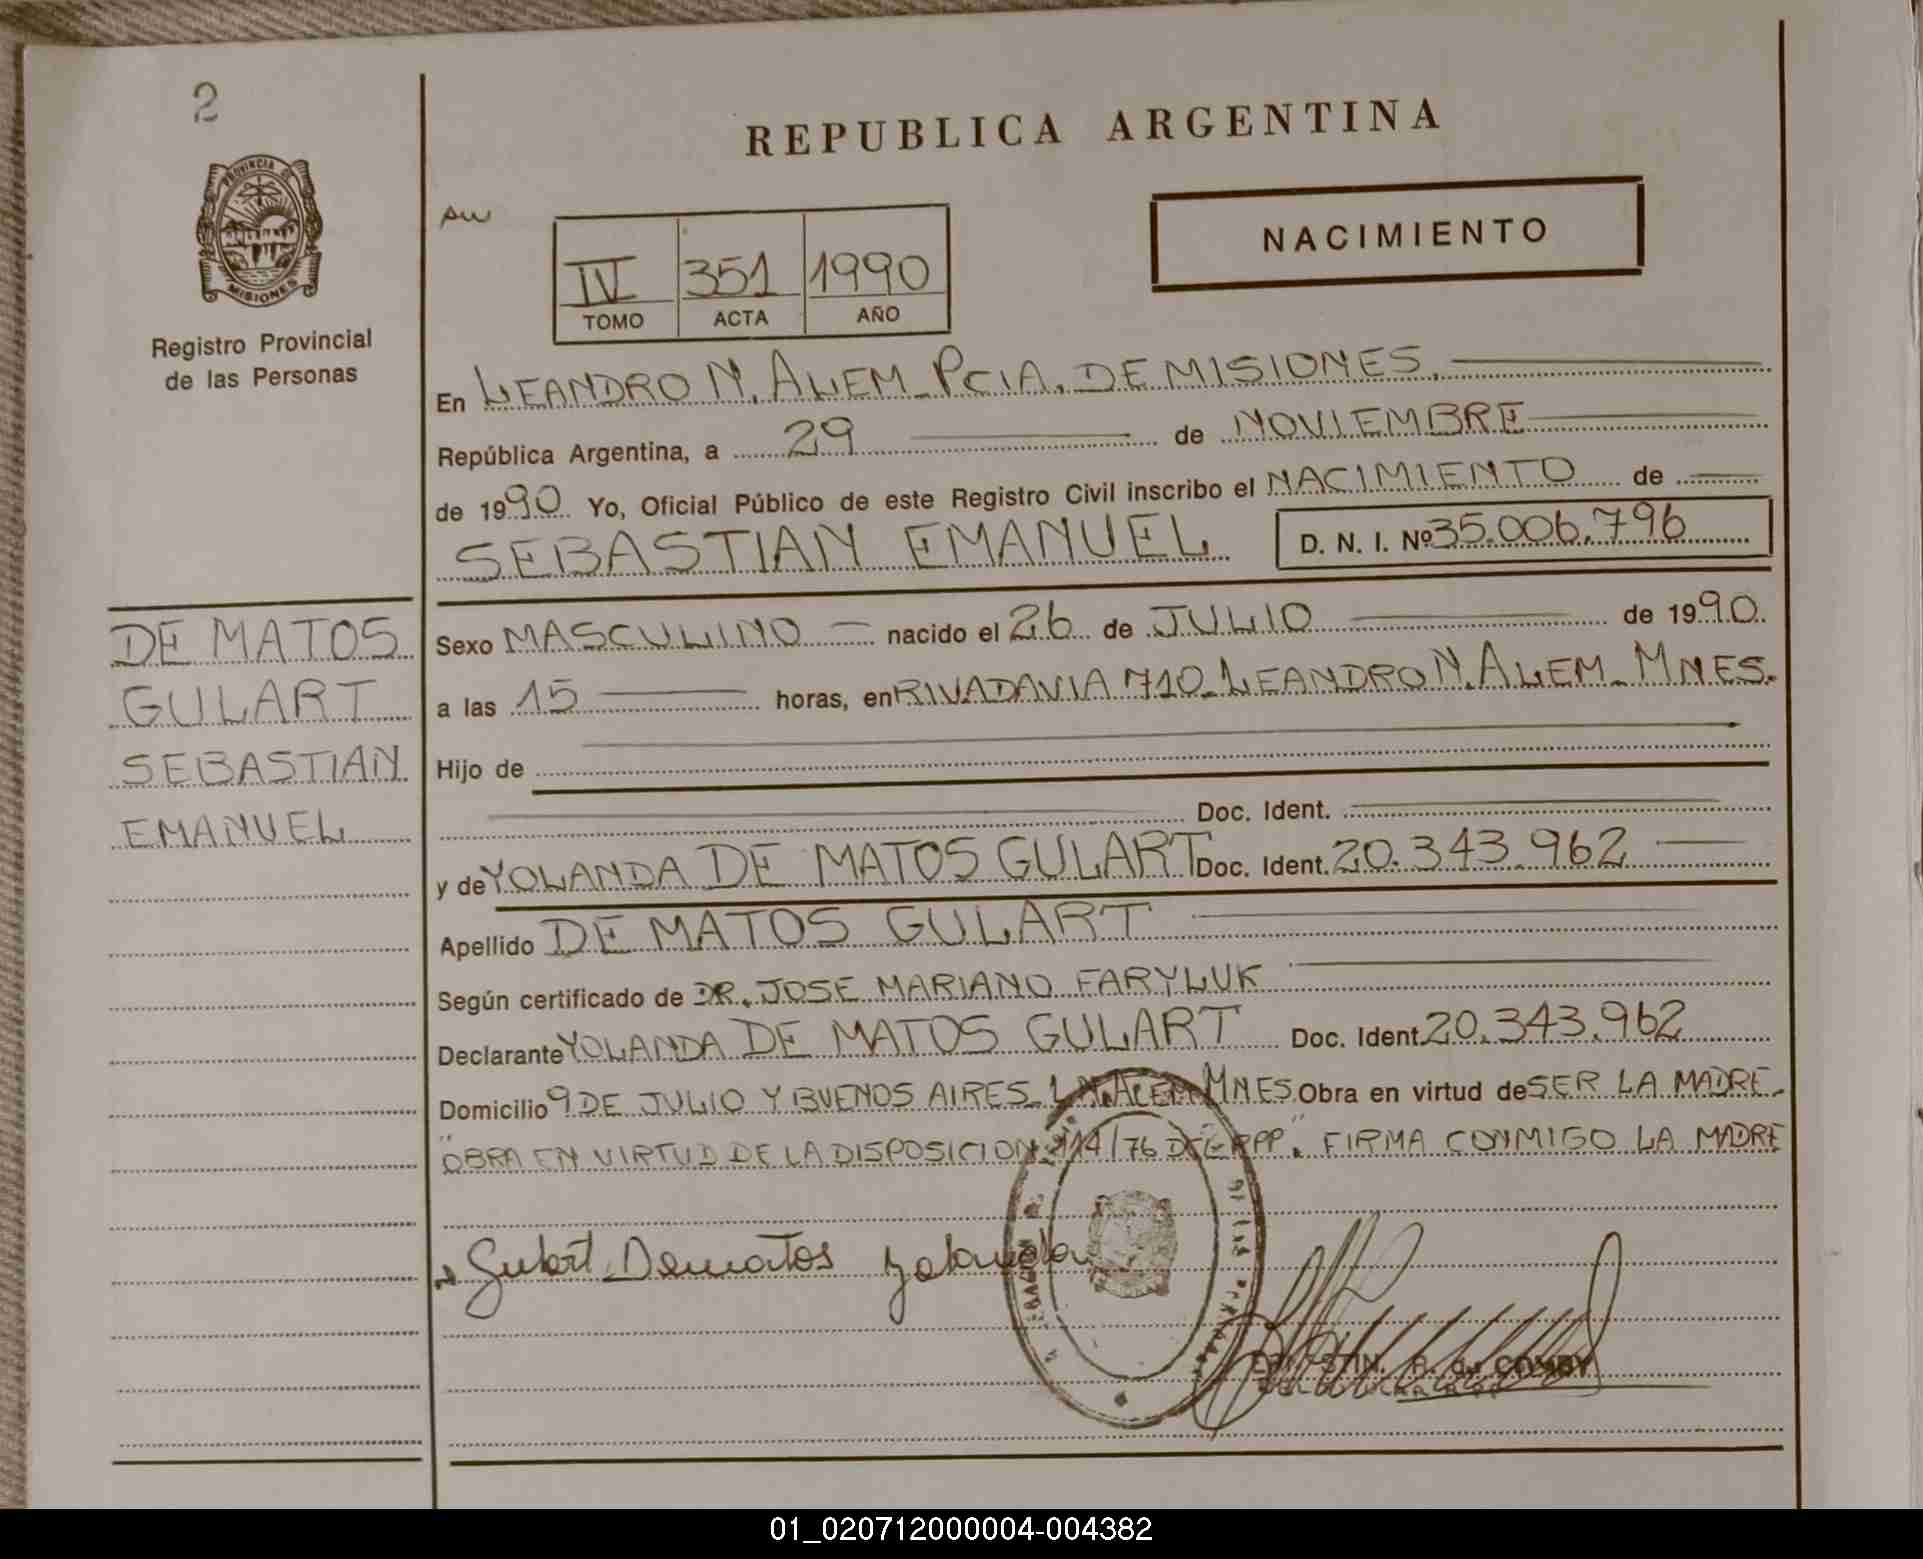 2
PROVINCIA DE
MISIONES
Registro Provincial
de las Personas
REPUBLICA ARGENTINA
NACIMIENTO
IV 351 1990
TOMO ACTA AÑO
En LEANDRO N. ALEM - PCIA. DE MISIONES.
República Argentina, a 29 de NOVIEMBRE
de 1990 Yo, Oficial Público de este Registro Civil inscribo el NACIMIENTO de
SEBASTIAN EMANUEL D. N. I. Nº 35.006.796
DE MATOS
GULART
SEBASTIAN
EMANUEL
Sexo MASCULINO nacido el 26 de JULIO de 1990.
a las 15 horas, en RIVADAVIA 710 - LEANDRO N. ALEM - MNES.
Hijo de
Doc. Ident.
y de YOLANDA DE MATOS GULART Doc. Ident. 20.343.962
Apellido DE MATOS GULART
Según certificado de DR. JOSE MARIANO FARYLUK
Declarante YOLANDA DE MATOS GULART Doc. Ident. 20.343.962
Domicilio 9 DE JULIO Y BUENOS AIRES - L.N. ALEM MNES. Obra en virtud de SER LA MADRE.
"OBRA EN VIRTUD DE LA DISPOSICION 114/76 DE RPP". FIRMA CONMIGO LA MADRE
Gulart Dematos Yolanda
01_020712000004-004382